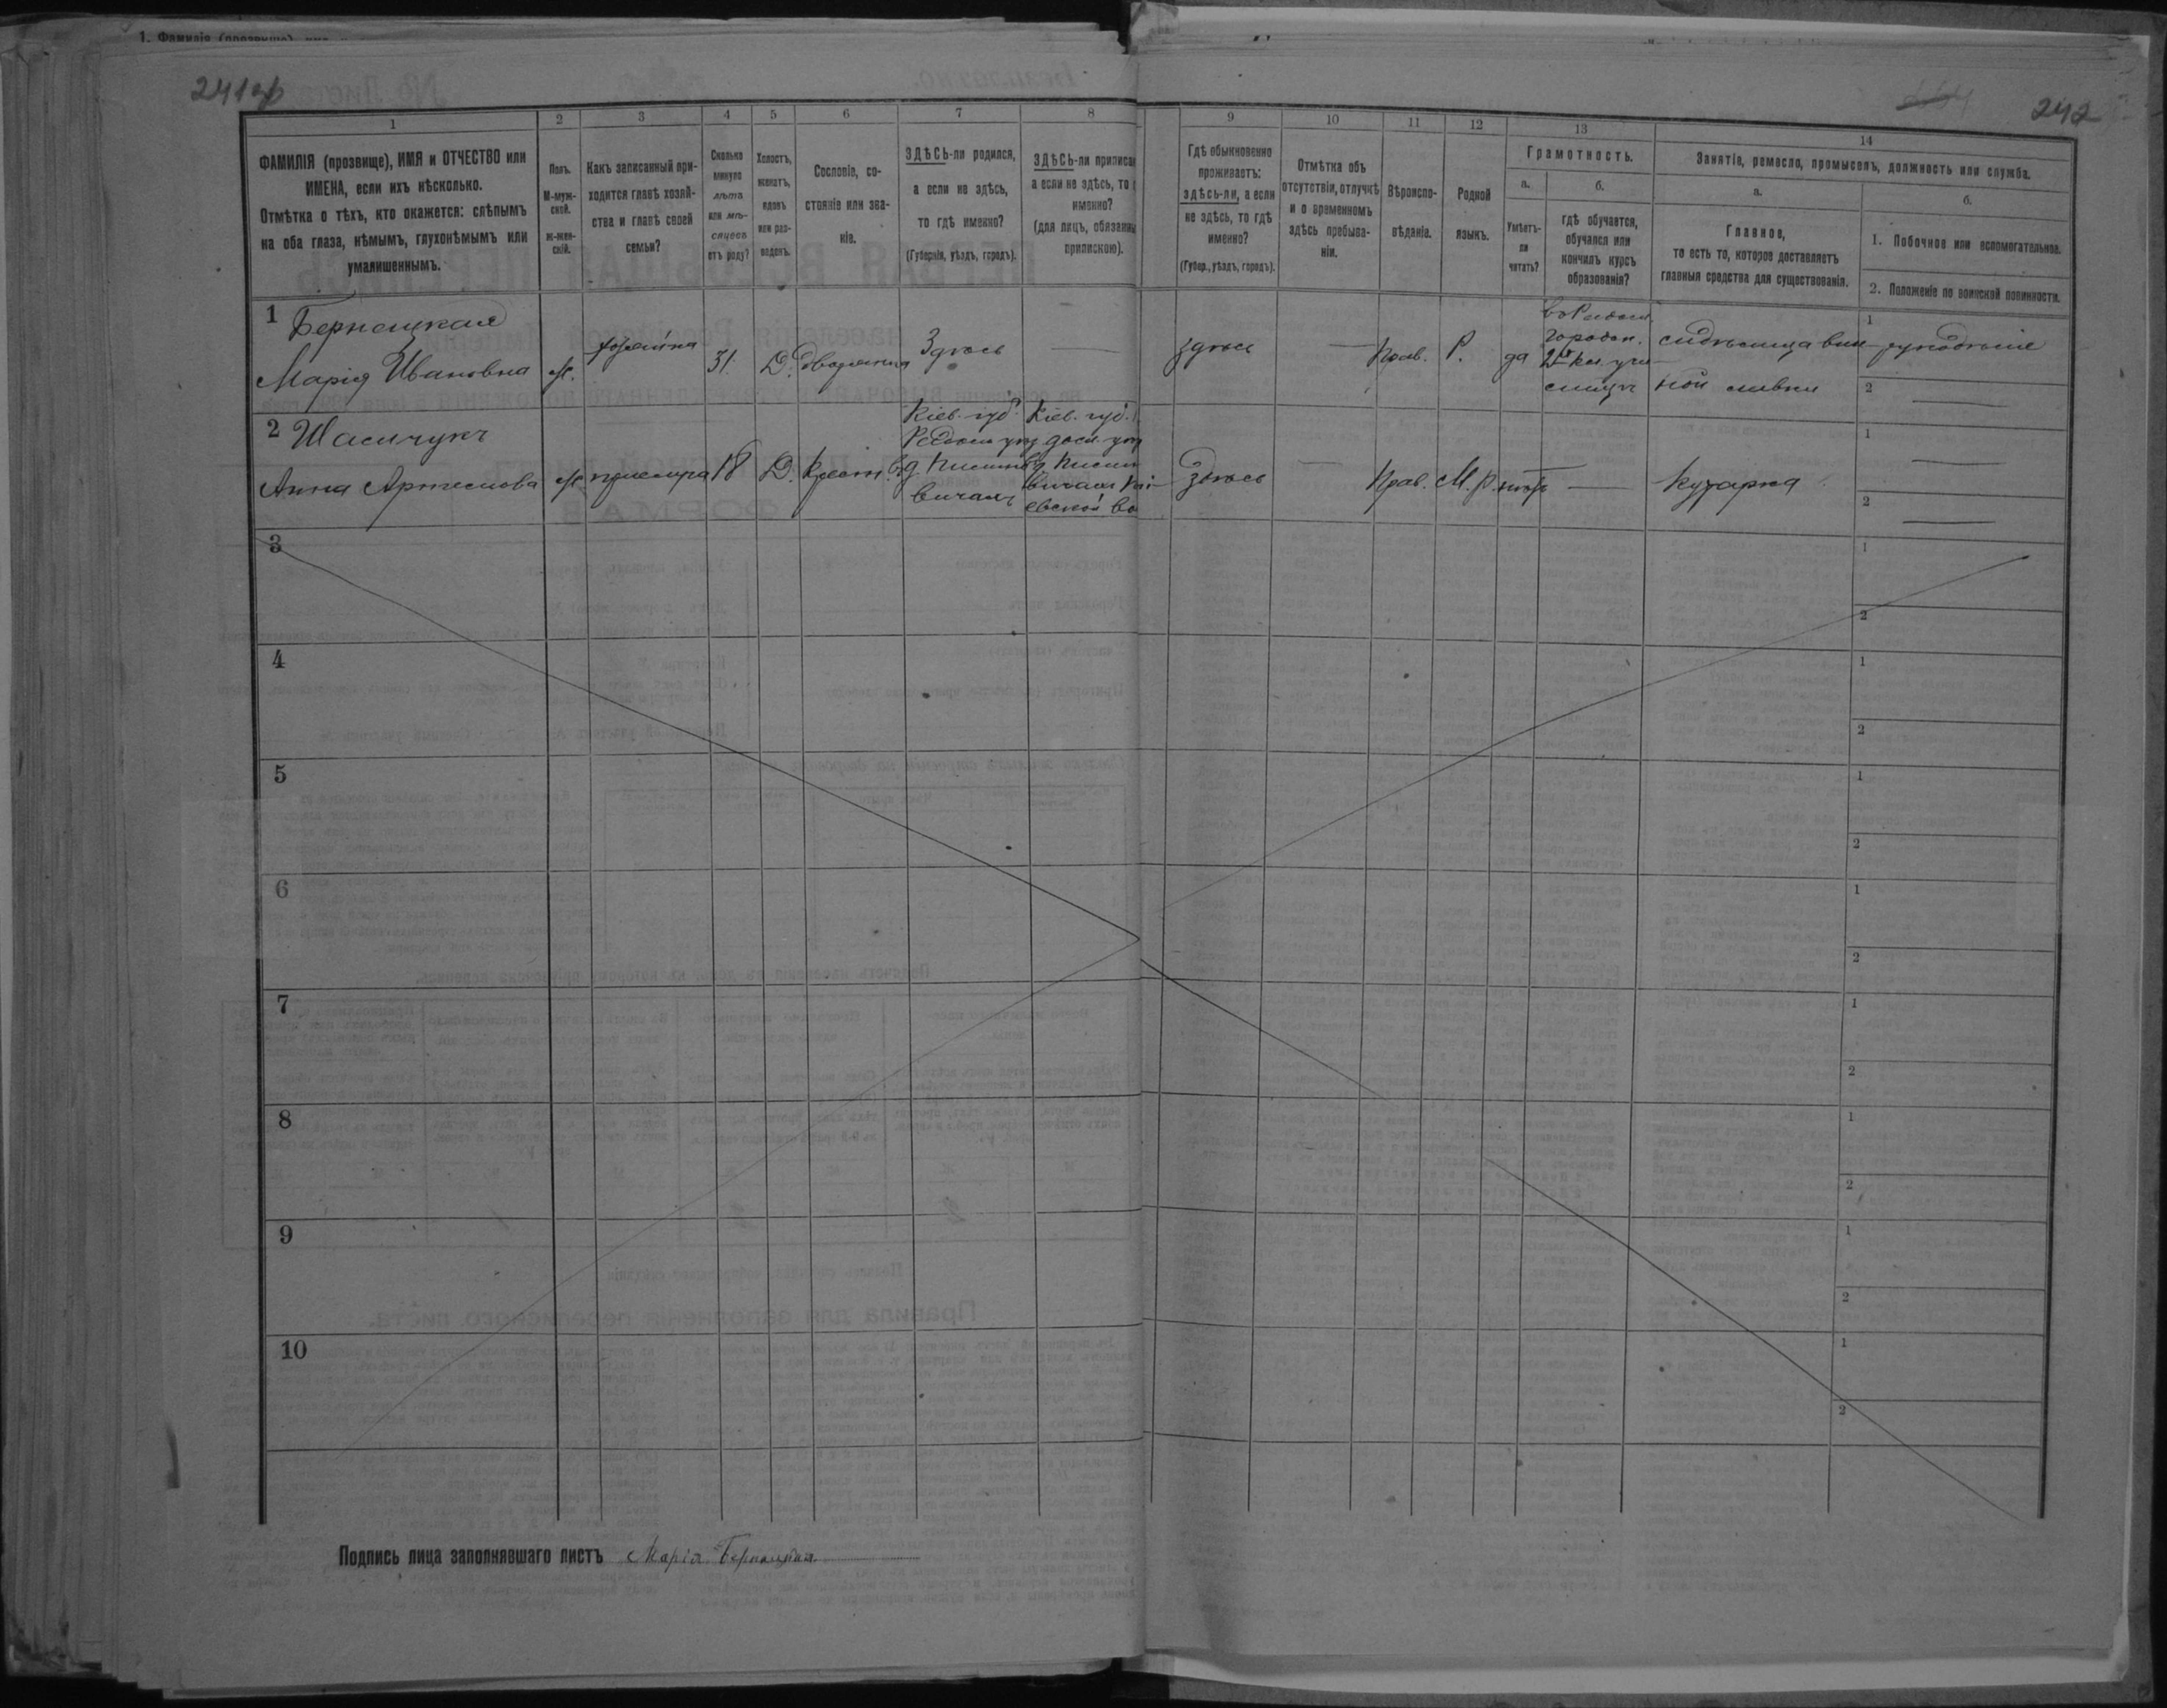 241об
242
1 2 3 4 5 6 7 8 9 10 11 12 13 14
ФАМИЛІЯ (прозвище), ИМЯ и ОТЧЕСТВО или
ИМЕНА, если ихъ нѣсколько.
Отмѣтка о тѣхъ, кто окажется: слѣпымъ
на оба глаза, нѣмымъ, глухонѣмымъ или
умалишеннымъ.
Полъ.
М-муж-
ской.
Ж-жен-
скій.
Какъ записанный при-
ходится главѣ хозяй-
ства и главѣ своей
семьи?
Сколько
минуло
лѣтъ
или мѣ-
сяцевъ
отъ роду?
Холостъ,
женатъ,
вдовъ
или раз-
веденъ.
Сословіе, со-
стояніе или зва-
ніе.
ЗДѢСЬ-ли родился,
а если не здѣсь,
то гдѣ именно?
(Губернія, уѣздъ, городъ).
ЗДѢСЬ-ли приписа
а если не здѣсь, то
именно?
(для лицъ, обязанны
припискою).
Гдѣ обыкновенно
проживаетъ:
здѣсь-ли, а если
не здѣсь, то гдѣ
именно?
(Губер., уѣздъ, городъ).
Отмѣтка объ
отсутствіи, отлучкѣ
и о временномъ
здѣсь пребыва-
ніи.
Вѣроиспо-
вѣданіе.
Родной
языкъ.
Грамотность.
а.
Умѣетъ-
ли
читать?
б.
гдѣ обучается,
обучался или
кончилъ курсъ
образованія?
Занятіе, ремесло, промыселъ, должность или служба.
а.
Главное,
то есть то, которое доставляетъ
главныя средства для существованія.
б.
1. Побочное или вспомогательное.
2. Положеніе по воинской повинности.
1 Бернацкая
Марія Ивановна
Ж.
хозяйка
31.
Д.
дворянка
Здѣсь
—
здѣсь
—
Прав.
Р.
да
городск.
2х кл. учи
лищѣ
сидѣлица вин
ной лавки
1 рукодѣліе
2 —
2
Анна Артемова
Ж.
18
Д.
Крест.
Кіев. губ.
вичахъ
Кіев. губ.
здѣсь
—
Прав.
М. р.
нѣтъ
—
Кухарка
1 —
2 —
3
1
2
4
1
2
5
1
2
6
1
2
7
1
2
8
1
2
9
1
2
10
1
2
Подпись лица заполнявшаго листъ Марія Бернацкая